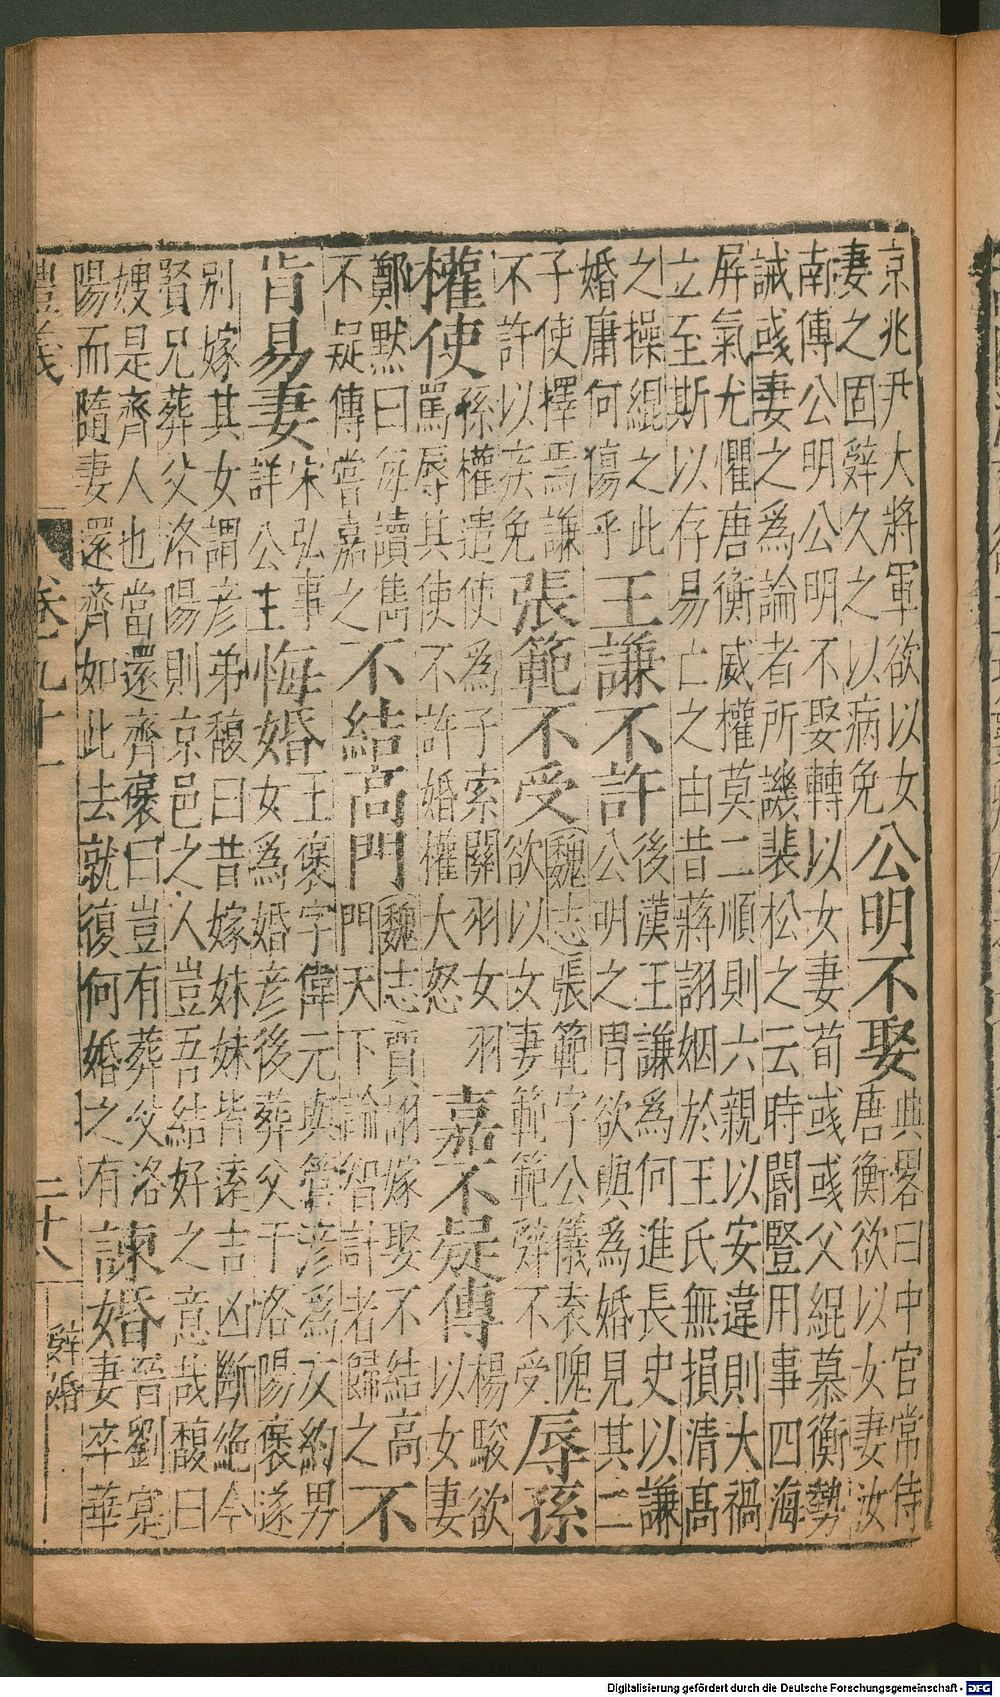 京兆尹大將軍欲以女
妻之固辭久之以病免
公明不娶
典畧曰中官常侍
唐衡欲以女妻汝
南傳公明公明不娶轉以女妻荀彧彧父緄慕衡勢
誡彧妻之爲論者所譏裴松之云時閹豎用事四海
屏氣尤懼唐衡威權莫二順則六親以安違則大禍
立至斯以存易亡之由昔蔣詡姻於王氏無損清高
之操緄之此
婚庸何傷乎
王謙不許
後漢王謙爲何進長史以謙
公明之胄欲與爲婚見其二
子使擇焉謙
不許以疾免
張範不受
魏志張範字公儀袁隗
欲以女妻範範辭不受
辱孫
權使
孫權遣使爲子索關羽女羽
罵辱其使不許婚權大怒
嘉不疑傳
楊駿欲
以女妻
鄭默曰每讀雋
不疑傳嘗嘉之
不結高門
魏志賈詡嫁娶不結高
門天下論智計者歸之
不
肯易妻
宋弘事
詳公主
悔婚
王裒字偉元與管彦爲友約男
女爲婚彦後葬父于洛陽裒遂
別嫁其女謂彦弟馥曰昔嫁妹妹皆遠吉凶斷絶今
賢兄葬父洛陽則京邑之人豈吾結好之意哉馥曰
嫂是齊人也當還齊裒曰豈有葬父洛
陽而隨妻還齊如此去就復何婚之有
諫婚
晉劉寔
妻卒華
卷之九十一
二十八
辭婚
Digitalisierung gefördert durch die Deutsche Forschungsgemeinschaft - DFG